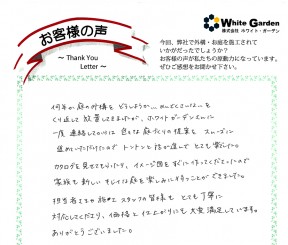 お客様の声
～ Thank You
Letter ～
White Garden
株式会社 ホワイト・ガーデン
今回、弊社で外構・お庭を施工されて
いかがだったでしょうか?
お客様の声が私たちの原動力になっています。
ぜひご感想をお聞かせ下さい。
何年か庭の外構をどうしようか…めんどくさいな…を
くり返して放置してましたが、ホワイトガーデンさんに
一度連絡してからは色々な庭づくりの提案をスムーズに
進めていただけたのでトントンと話が進んでとても楽でした。
カタログを見せてもらったり、イメージ図をすぐに作ってくださったので
家族も新しいキレイな庭を楽しみに待つことができました。
担当者さまや施工スタッフの皆様もとても丁寧に
対応してくださり、価格と仕上がりにも大変満足しています。
ありがとうございました。